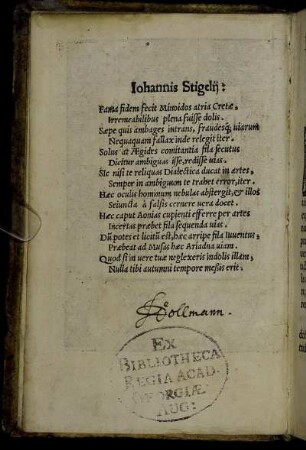 Iohannis Stigelij:
Fama fidem fecit Minoidos atria Cretæ,
Irremeabilibus plena fuisse dolis.
Sæpe quis ambages intrans, fraudesq; uiarum
Nequaquam fallax inde relegit iter.
Solus at Ægides comitantia fila secutus
Dicitur ambiguas isse, redisse uias.
Sic nisi te reliquas Dialectica ducat in artes,
Semper in ambiguum te trahet error, iter.
Hæc oculis hominum nebulas abstergit, & illos
Seiuncta à falsis cernere uera docet.
Hæc caput Aonias cupienti efferre per artes
Incertas præbet fila sequenda uias.
Dū potes et licitū est, hæc arripe fila Iuuentus,
Præbeat ad Musas hæc Ariadna uiam.
Quod si in uere tuæ neglexeris indolis illam,
Nulla tibi autumni tempore messis erit.
Hollmann.
EX
BIBLIOTHECA
REGIA ACAD.
GEORGIÆ
AUG: